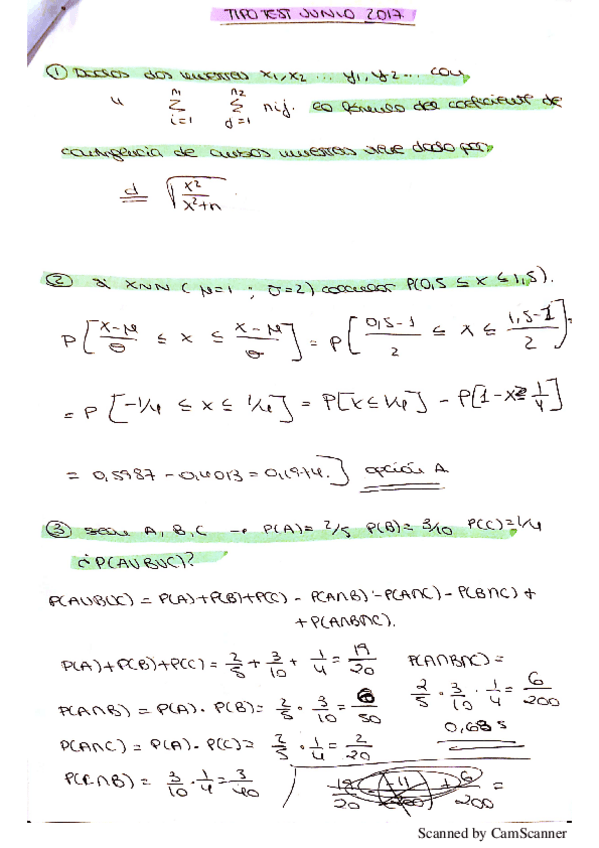 TIPO TEST JUNIO 2017.
① Dados dos muestras x1,x2 ... y1,y2 ... con
n1 Σ i=1 n2 Σ j=1 nij. la fórmula del coeficiente de
contingencia de ambas muestras viene dado por:
d √(x²/(x²+n))
② Si X~N (μ=1 ; σ=2) calcular P(0,5 ≤ x ≤ 1,5).
P[(x-μ)/σ ≤ x ≤ (x-μ)/σ] = P[(0,5-1)/2 ≤ x ≤ (1,5-1)/2].
= P [-1/4 ≤ x ≤ 1/4] = P[x ≤ 1/4] - P[1-x≥ 1/4]
= 0,5987 - 0,4013 = 0,1974.] opción A.
③ Sean A, B, C → P(A)= 2/5 P(B)= 3/10 P(C)=1/4
¿P(AUBUC)?
P(AUBUC) = P(A)+P(B)+P(C) - P(A∩B) - P(A∩C) - P(B∩C) +
+ P(A∩B∩C).
P(A)+P(B)+P(C) = 2/5 + 3/10 + 1/4 = 19/20
P(A∩B∩C) =
2/5 · 3/10 · 1/4 = 6/200
P(A∩B) = P(A) · P(B) = 2/5 · 3/10 = 6/50
0,685
P(A∩C) = P(A) · P(C) = 2/5 · 1/4 = 2/20
P(C∩B) = 3/10 · 1/4 = 3/40
+ 6/200 =
Scanned by CamScanner